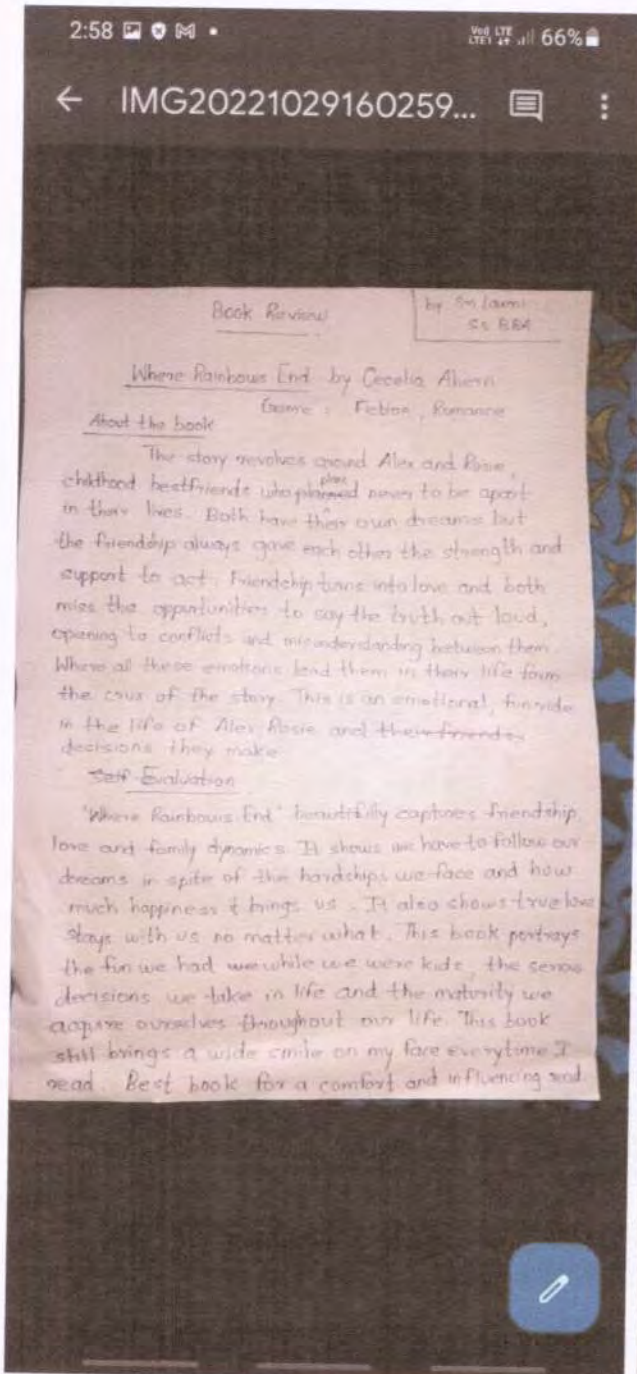 2:58
Vo) LTE LTE1 66%
IMG20221029160259...
Book Review
by Sri Laxmi
S5 BBA
Where Rainbows End by Cecelia Ahern
Genre : Fiction, Romance
About the book
The story revolves around Alex and Rosie,
childhood bestfriends who planned never to be apart
in their lives. Both have their own dreams but
the friendship always gave each other the strength and
support to act. Friendship turns into love and both
miss the opportunities to say the truth out loud,
opening to conflicts and misunderstanding between them.
Where all these emotions lend them in their life form
the crux of the story. This is an emotional, fun ride
in the life of Alex Rosie and their friends
decisions they make
Self Evaluation
'Where Rainbows End' beautifully captures friendship,
love and family dynamics. It shows we have to follow our
dreams in spite of the hardships we face and how
much happiness it brings us. It also shows true love
stays with us no matter what. This book portrays
the fun we had we while we were kids, the serious
decisions we take in life and the maturity we
acquire ourselves throughout our life. This book
still brings a wide smile on my face everytime I
read. Best book for a comfort and influencing read.